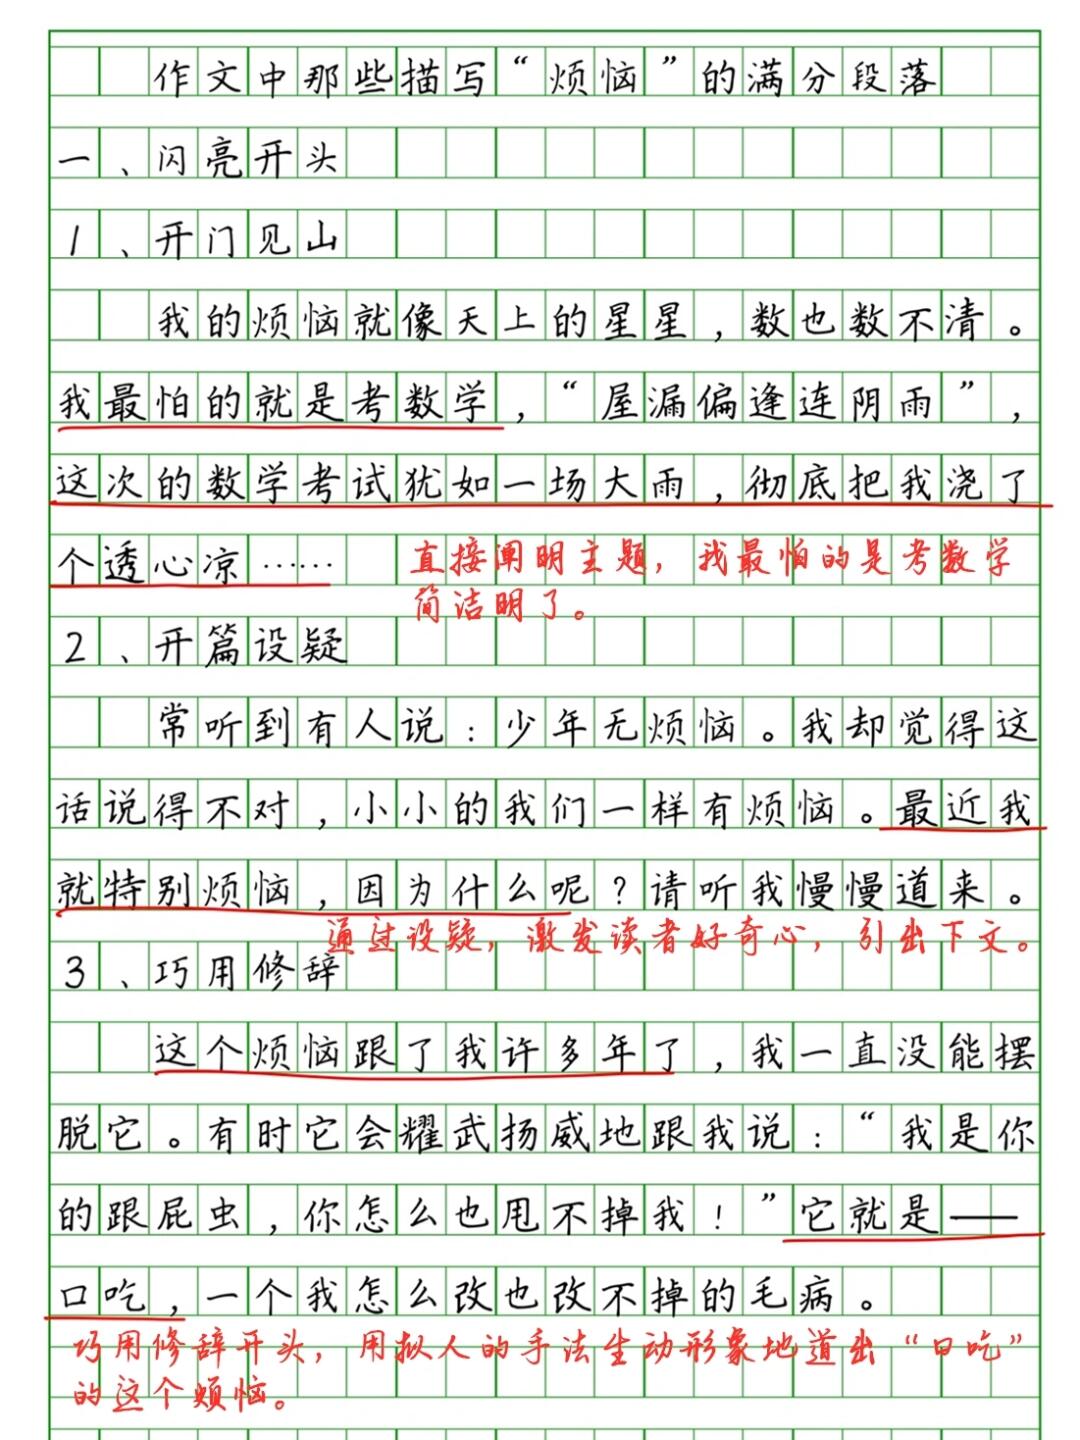 作文中那些描写“烦恼”的满分段落
一、闪亮开头
1、开门见山
我的烦恼就像天上的星星，数也数不清。
我最怕的就是考数学，“屋漏偏逢连阴雨”，
这次的数学考试犹如一场大雨，彻底把我浇了
个透心凉……
直接阐明主题，我最怕的是考数学
简洁明了。
2、开篇设疑
常听到有人说：少年无烦恼。我却觉得这
话说得不对，小小的我们一样有烦恼。最近我
就特别烦恼，因为什么呢？请听我慢慢道来。
通过设疑，激发读者好奇心，引出下文。
3、巧用修辞
这个烦恼跟了我许多年了，我一直没能摆
脱它。有时它会耀武扬威地跟我说：“我是你
的跟屁虫，你怎么也甩不掉我！”它就是——
口吃，一个我怎么改也改不掉的毛病。
巧用修辞开头，用拟人的手法生动形象地道出“口吃”
的这个烦恼。